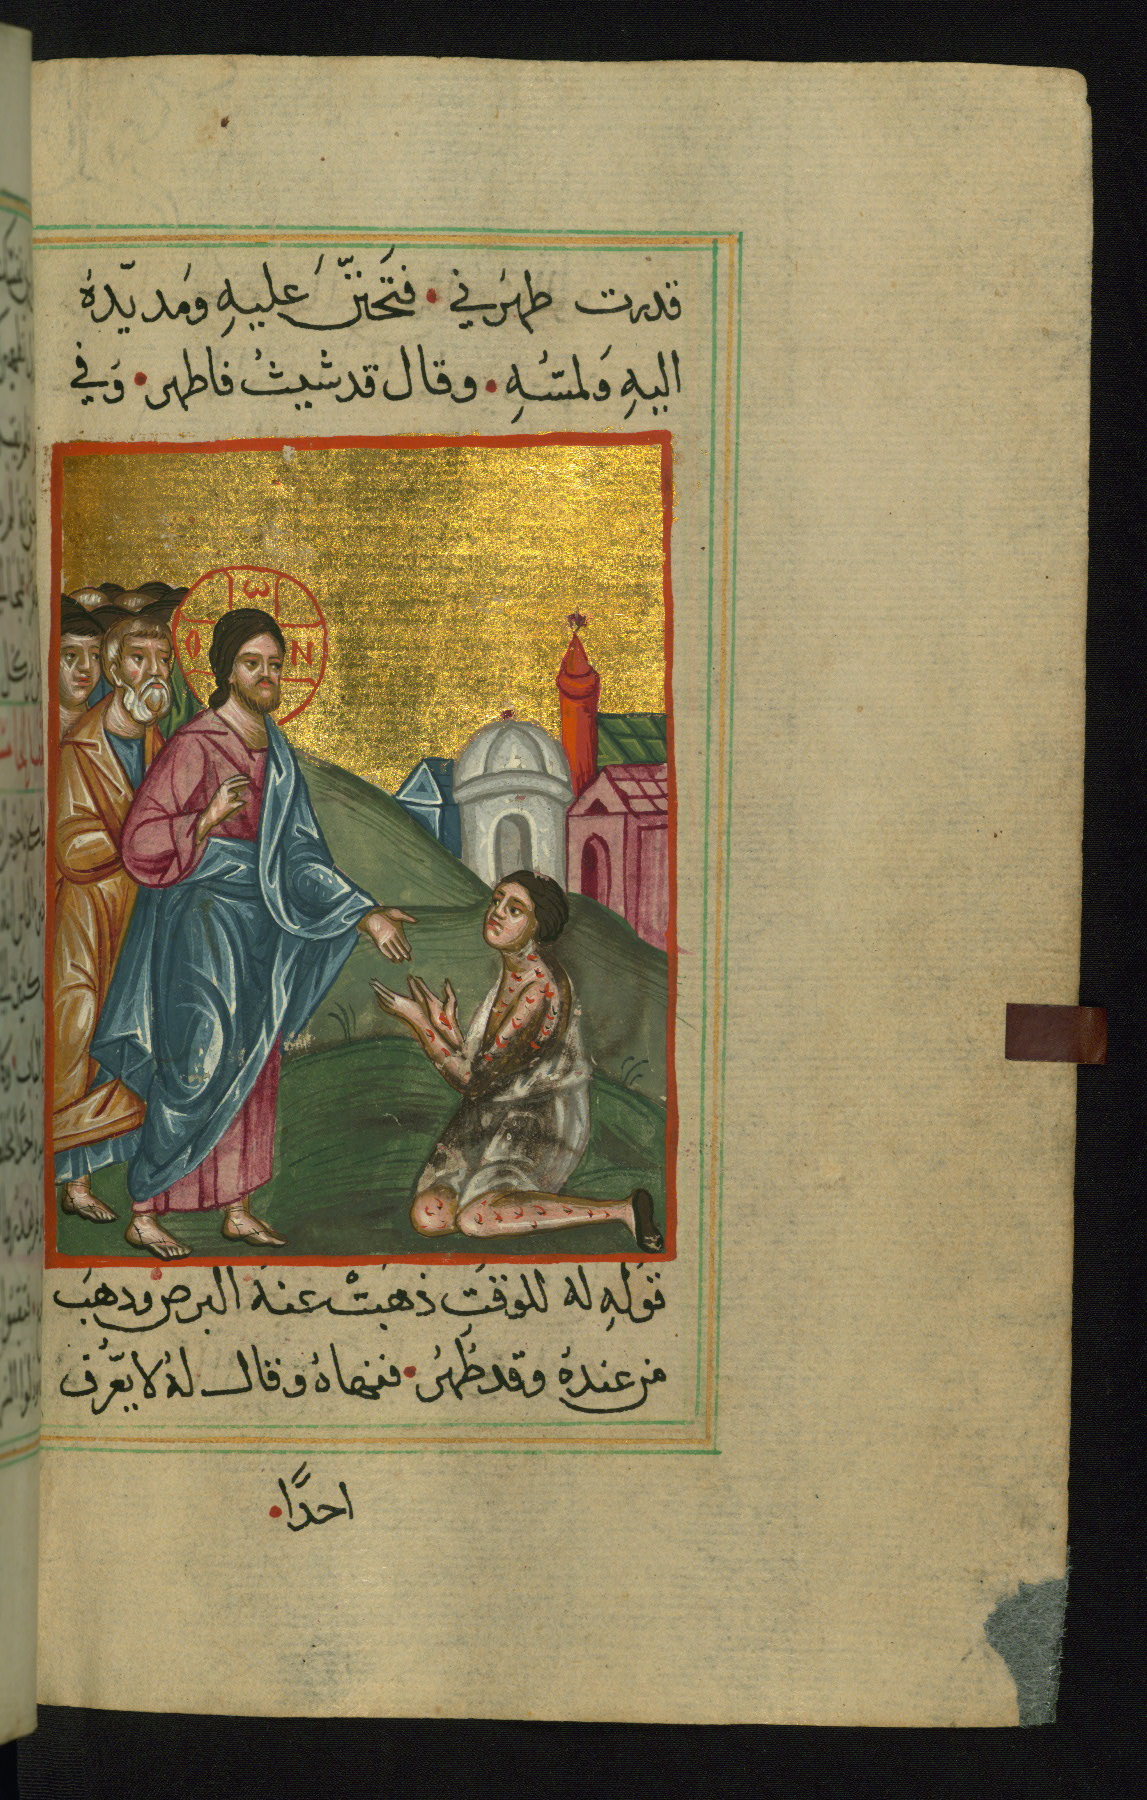 قدرت طهرني • فتَحَنّنَ عليهِ ومَد يّدهُ
اليهِ وَلمسُهِ • وقال قد شيتُ فاطهر • وَفي
Ѡ
Ο Ν
قولهِ له للوقتِ ذهَبتْ عنهُ البرص وذهبَ
من عندهُ وقد طَهُرَ • فنهاهُ وقال لهُ لا يعّرُف
احدًا •